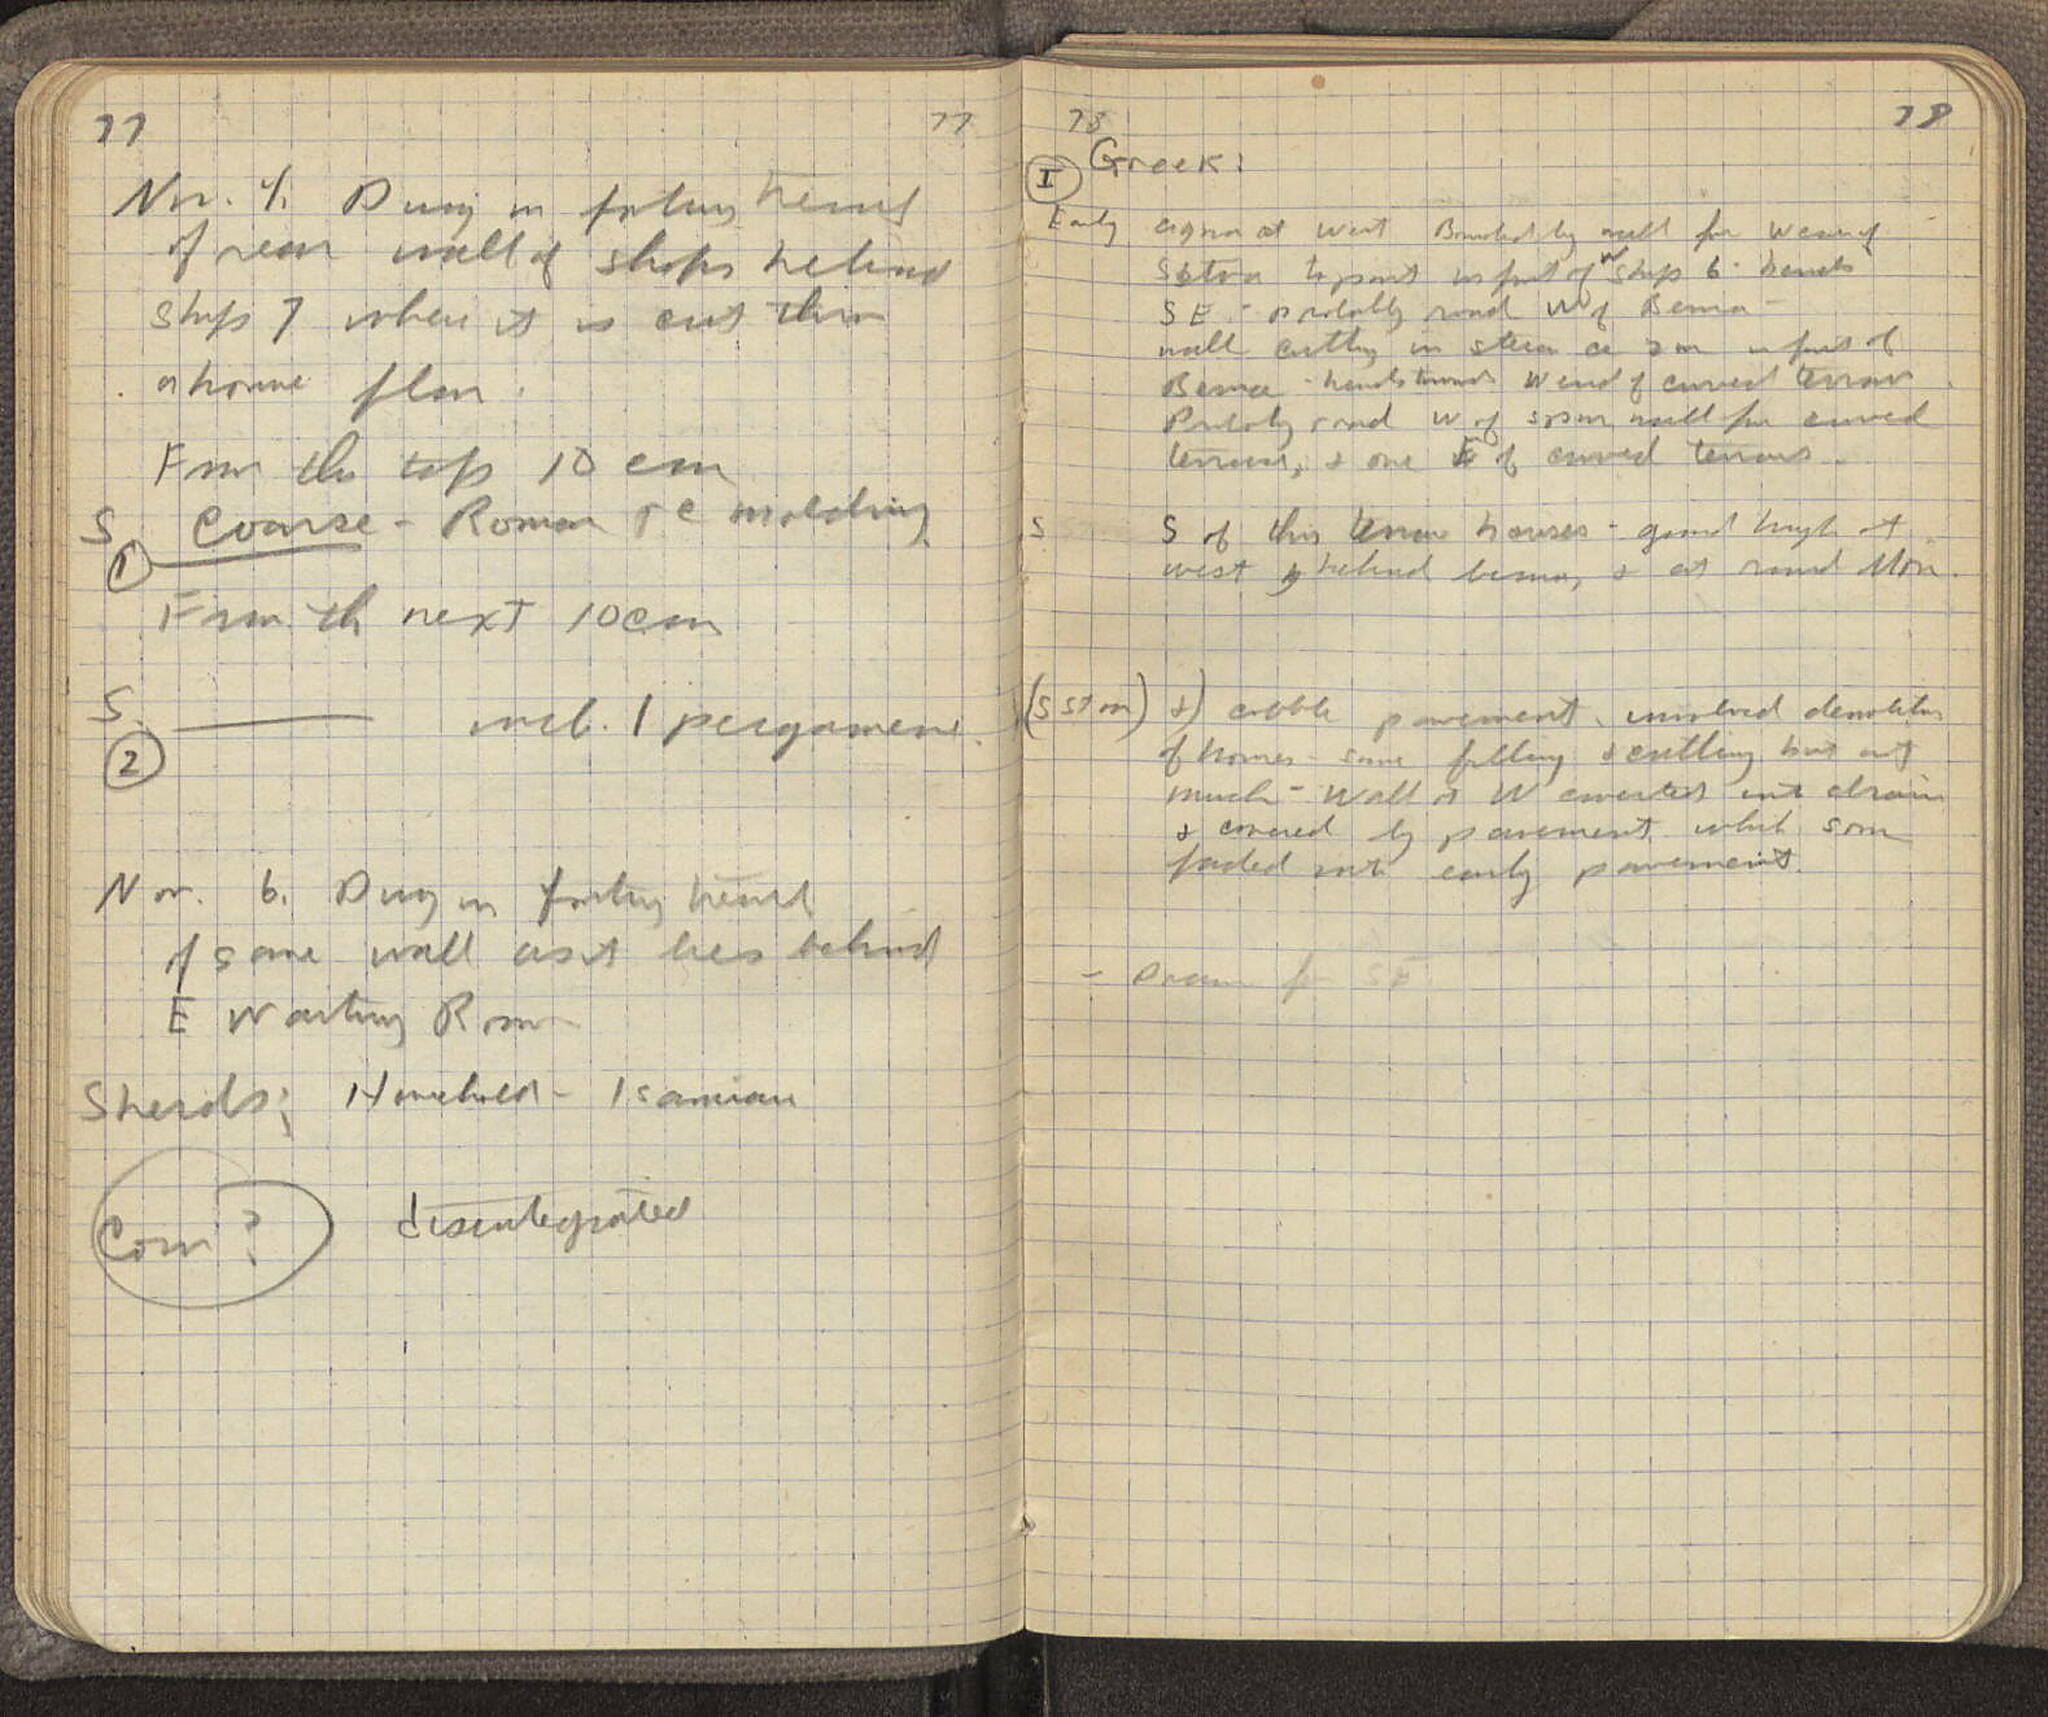 77 77
Nov. 4. Dug in footing trench
of rear wall of shops behind
Shop 7 where it is cut thru
a house floor.
From the top 10 cm
S Coarse - Roman moulding
1
From th next 10 cm
S
2 incl. 1 pergamene.
Nov. 6. Dug in footing trench
of same wall as it lies behind
E Waiting Room
Sherds; Household - 1 samian
Coin? disintegrated
78 78
I Greek:
Early agora at West Bounded by wall for W end of
S stoa to point in front of W Shop 6. bends
SE - probably road W of Bema -
wall cutting in stereo ca 2 m in front of
Bema - bends towards W end of curved terrace
Probably road W of wall for curved
terrace, & one E of curved terrace.
S S of this terrace houses - good high at
west behind bema, & at road
(S stoa) cobble pavement. involved demolition
of houses - some filling & cutting but not
much - Wall at W converted into drain
& covered by pavement which soon
faded into early pavement.
- Drain for SE